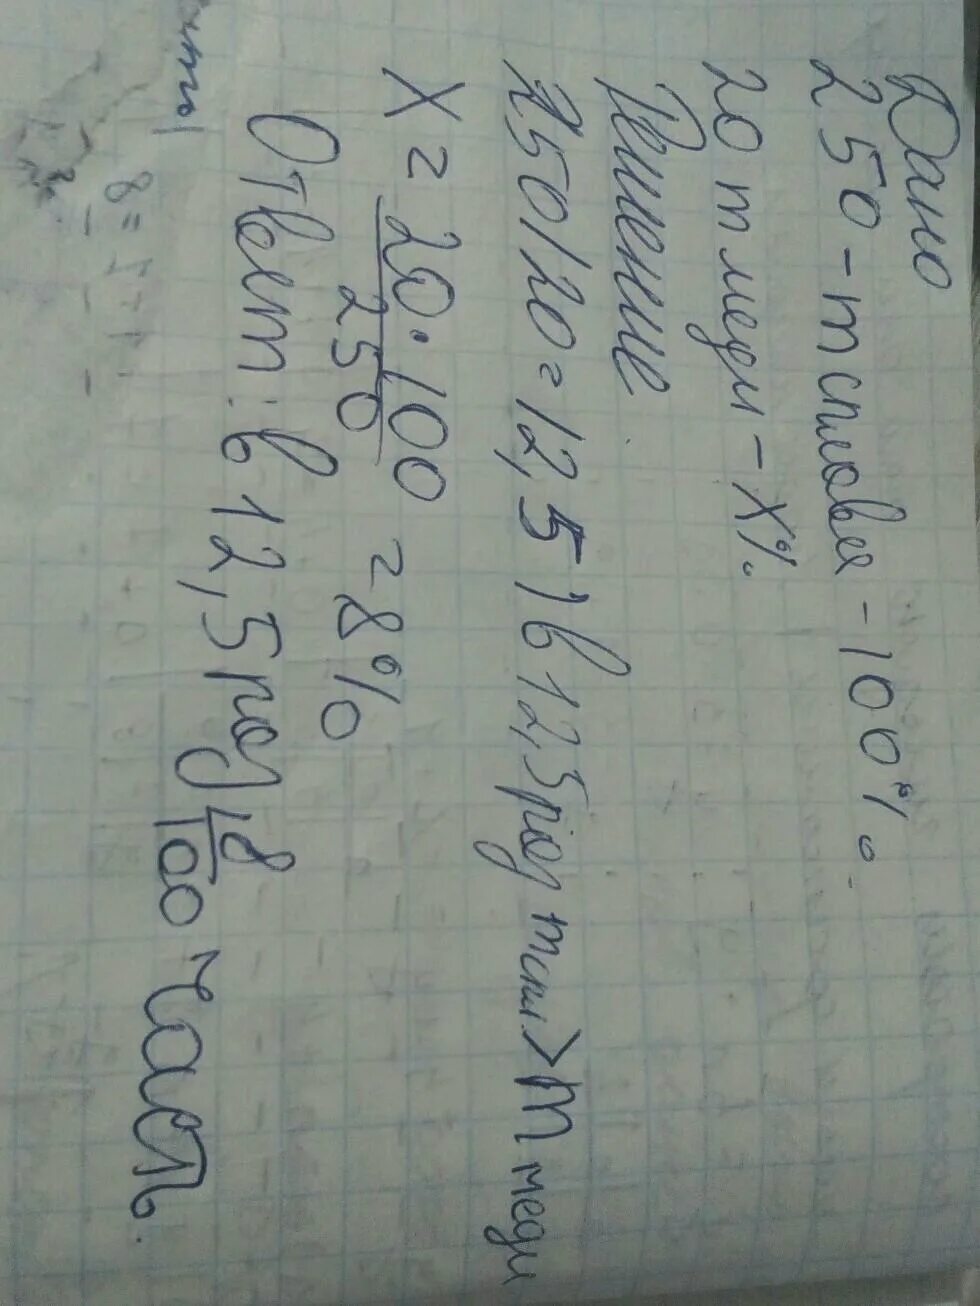 Дано
250 - m сплава - 100%.
20 m меди - X%.
Решение.
250/20 = 12,5) в 12,5 раз m спл > m меди
X = 20·100 / 250 = 8%
Ответ: в 12,5 раз, 8/100 - часть.